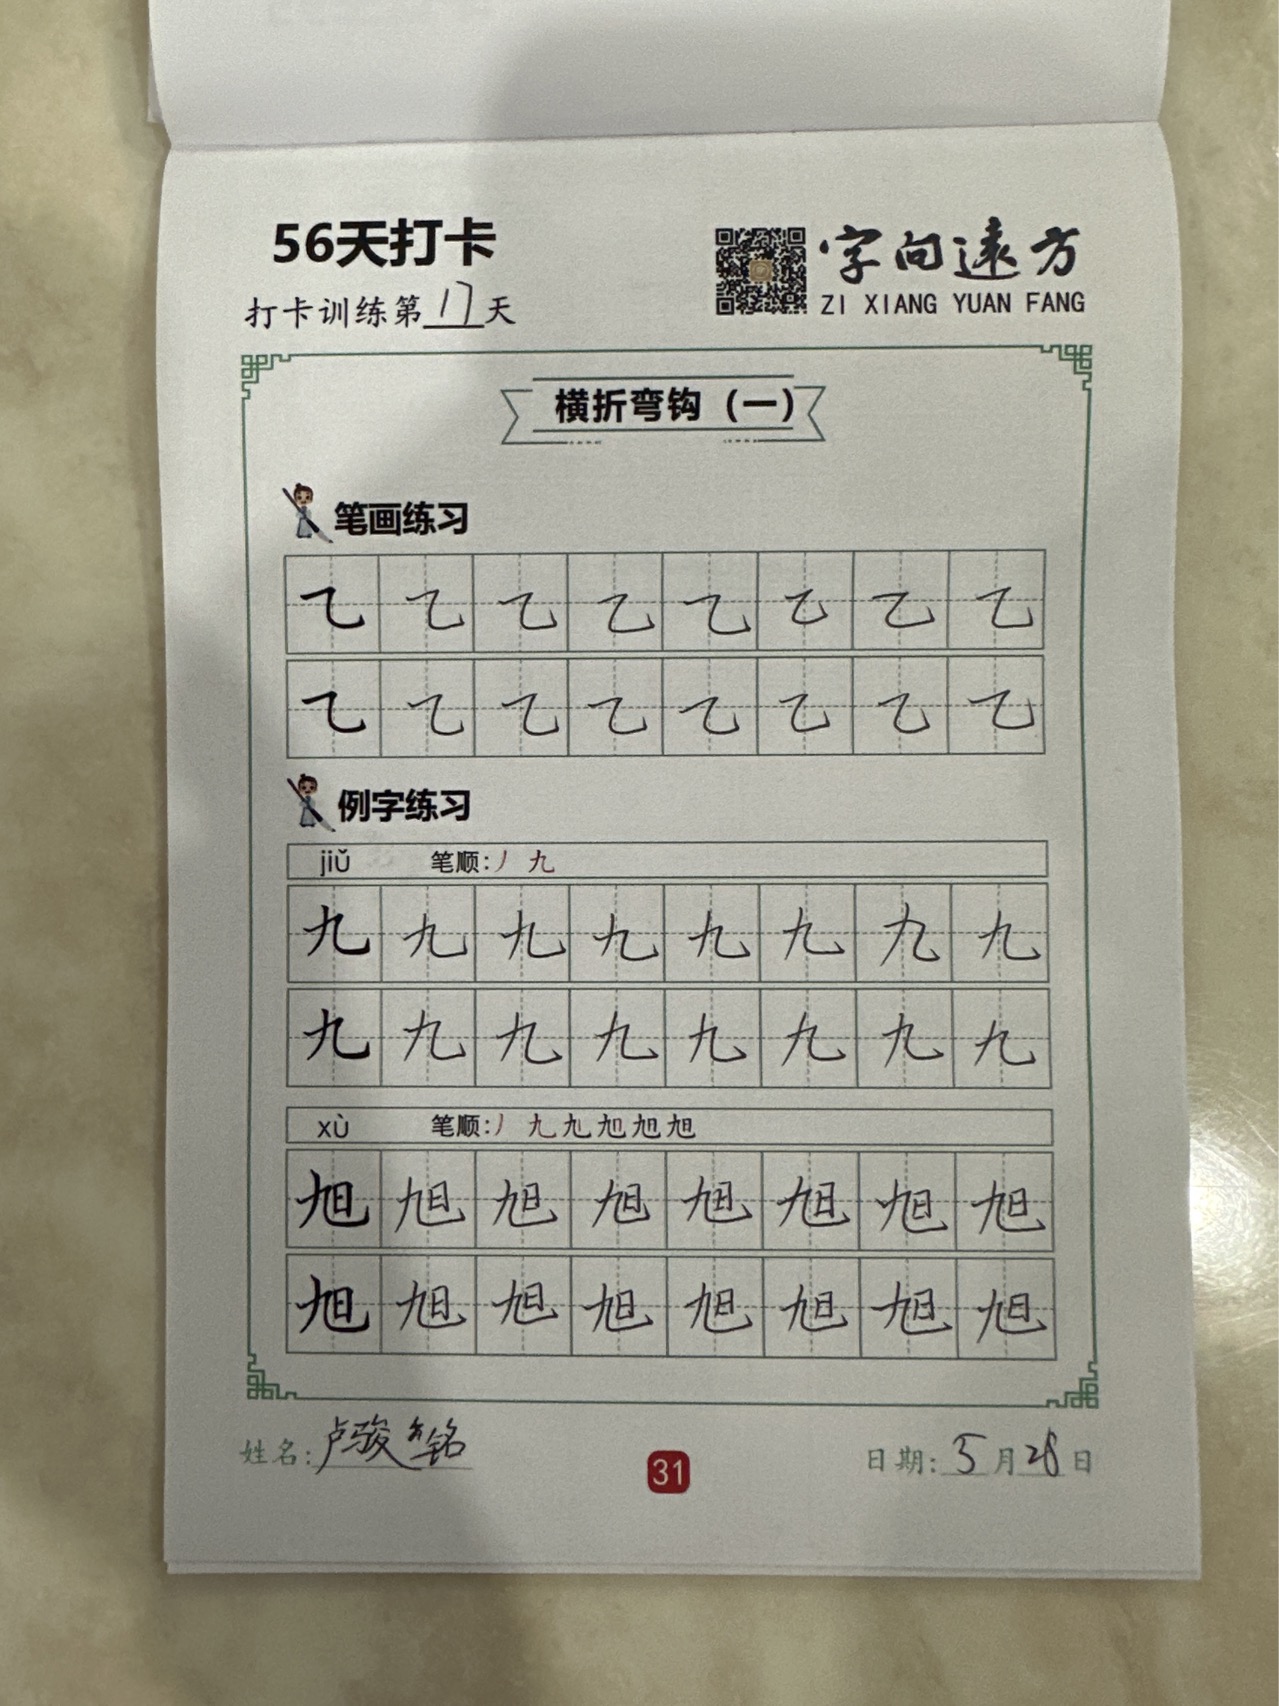 56天打卡
打卡训练第17天
字向远方
ZI XIANG YUAN FANG
横折弯钩（一）
笔画练习
乙乙乙乙乙乙乙乙
乙乙乙乙乙乙乙乙
例字练习
jiǔ 笔顺:丿 九
九九九九九九九九
九九九九九九九九
xù 笔顺:丿 九 九 旭 旭 旭
旭旭旭旭旭旭旭旭
旭旭旭旭旭旭旭旭
姓名:卢骏铭
31
日期:5月28日